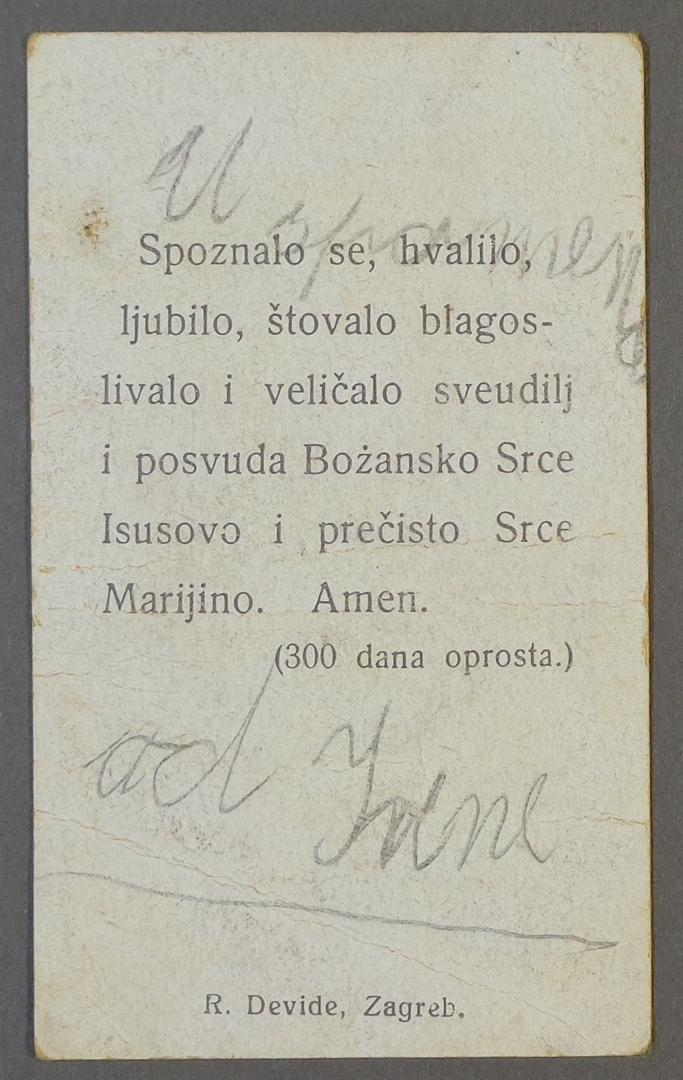 U
Spoznalo se, hvalilo,
ljubilo, štovalo blagos-
livalo i veličalo sveudilj
i posvuda Božansko Srce
Isusovo i prečisto Srce
Marijino. Amen.
(300 dana oprosta.)
od Irene
R. Devide, Zagreb.